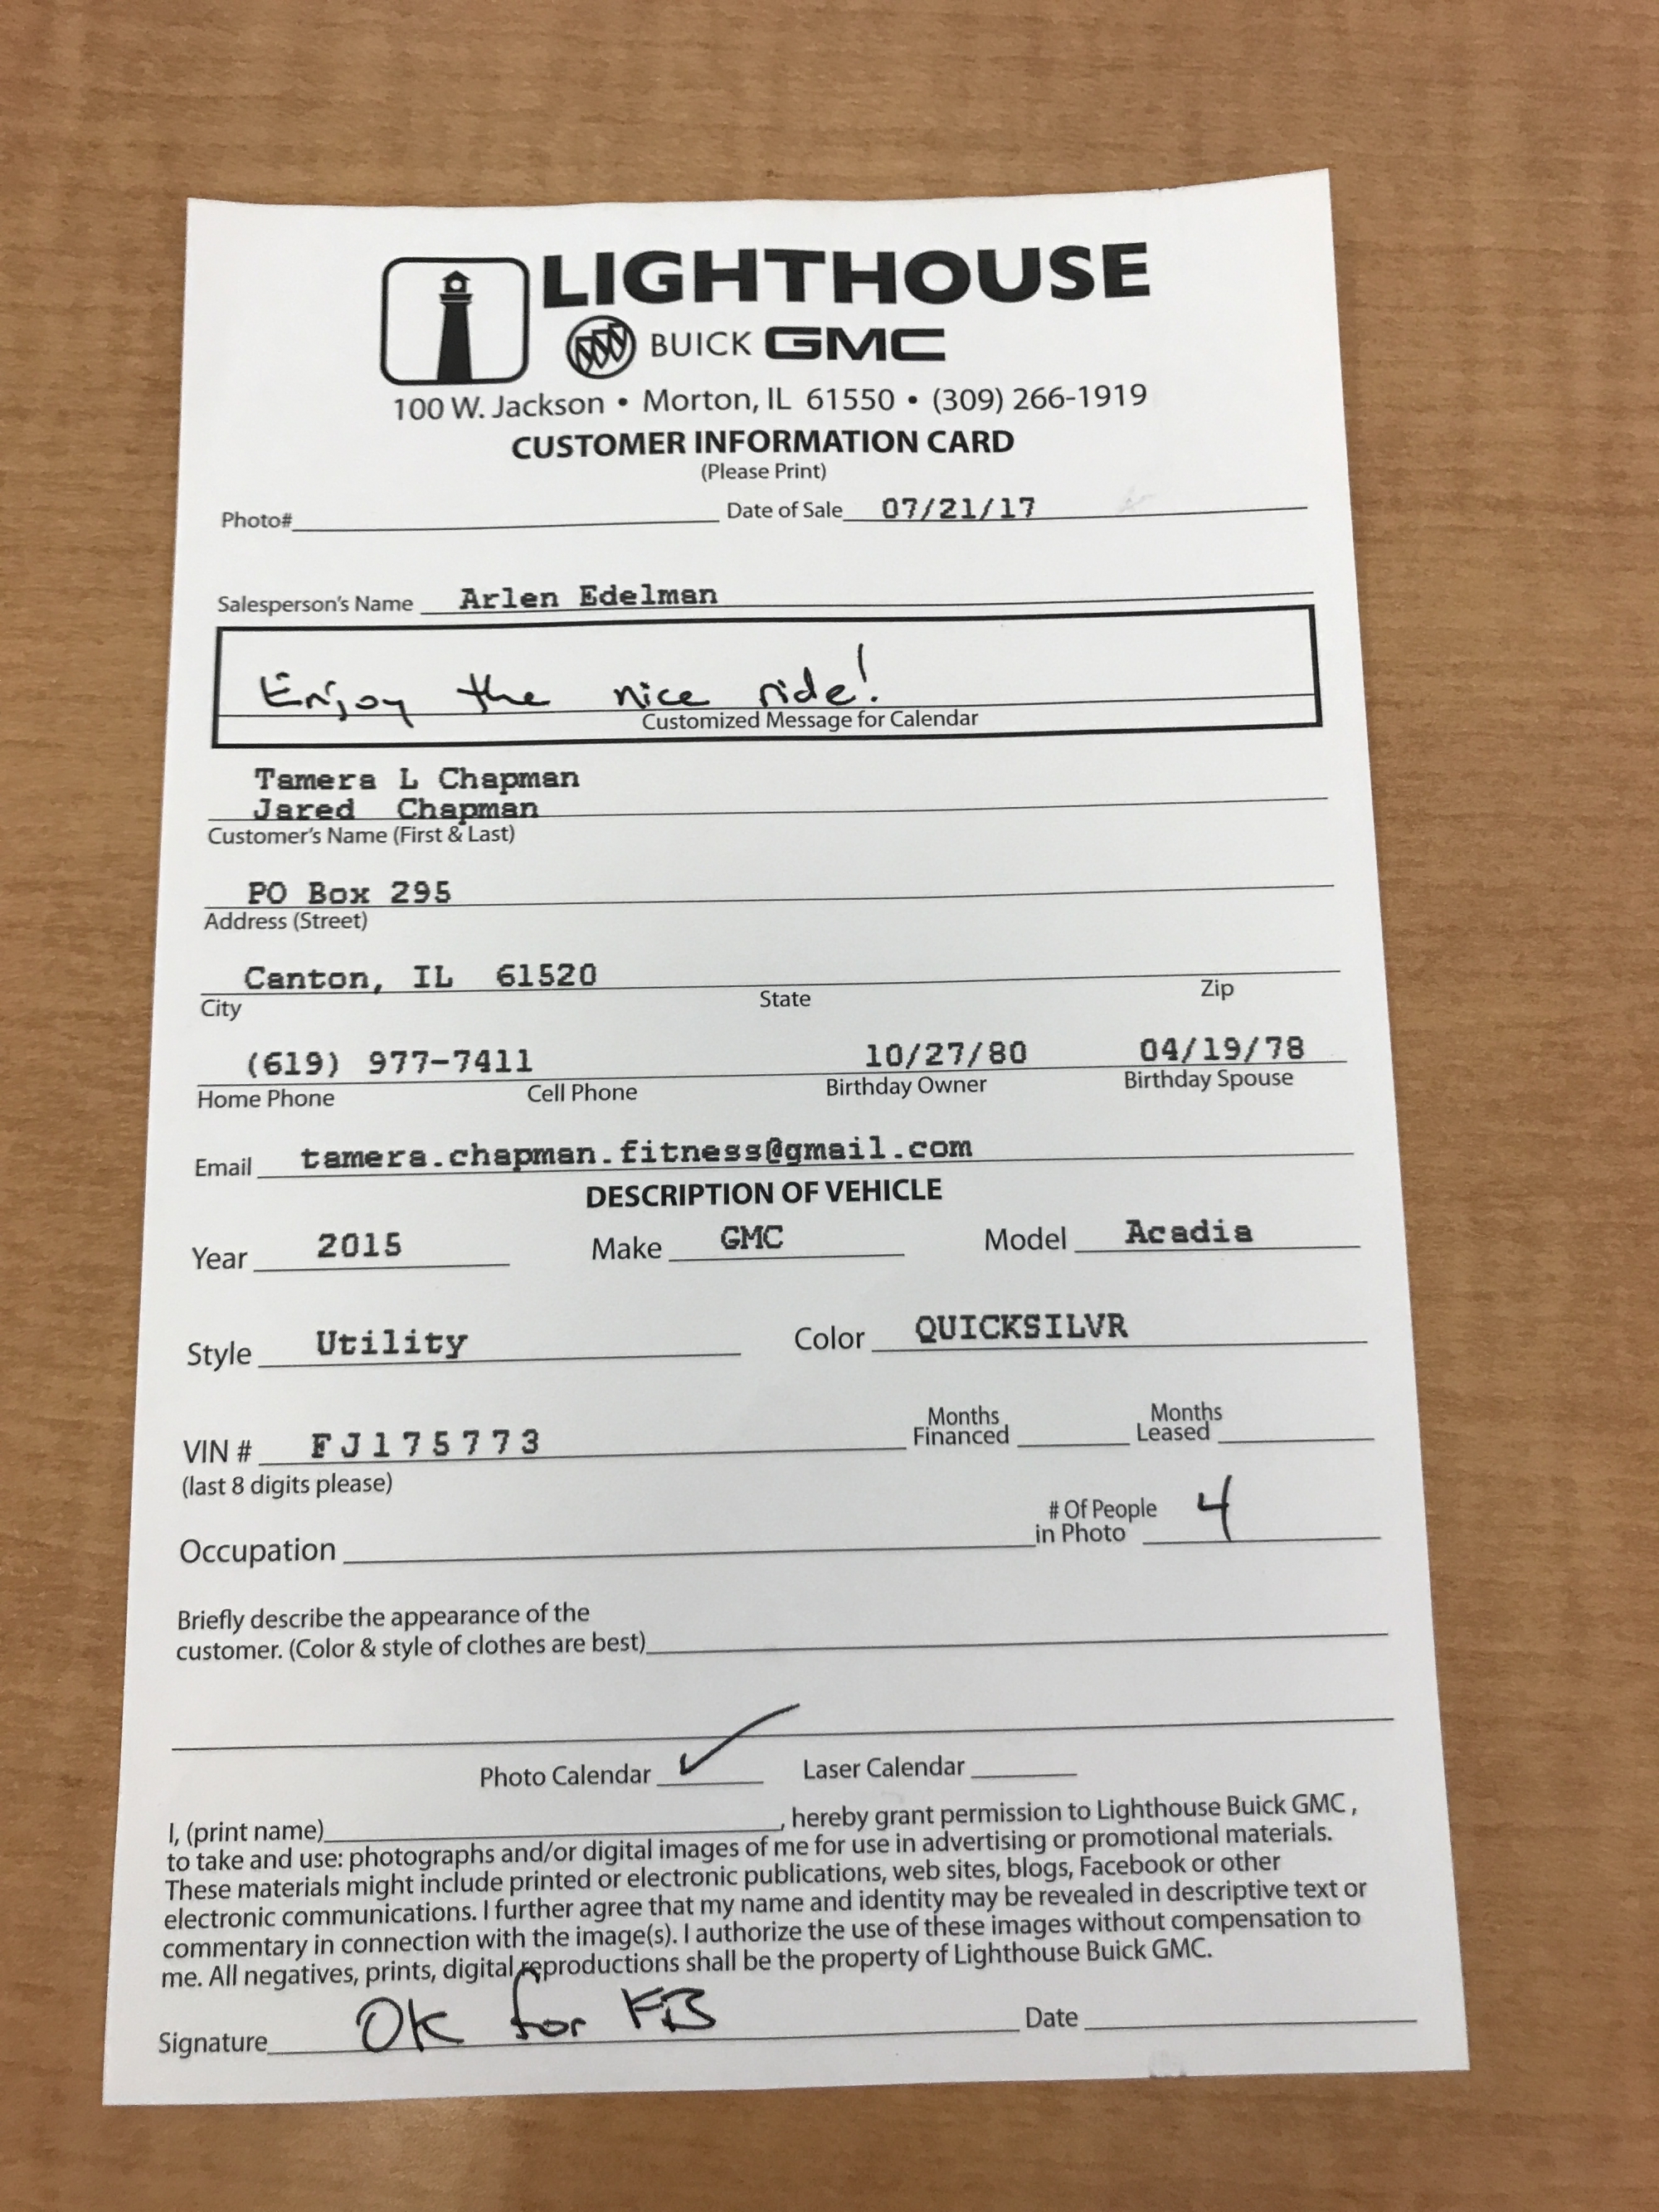 LIGHTHOUSE
BUICK GMC
100 W. Jackson • Morton, IL 61550 • (309) 266-1919
CUSTOMER INFORMATION CARD
(Please Print)
Photo# Date of Sale 07/21/17
Salesperson's Name Arlen Edelman
Enjoy the nice ride!
Customized Message for Calendar
Tamera L Chapman
Jared Chapman
Customer's Name (First & Last)
PO Box 295
Address (Street)
Canton, IL 61520
City State Zip
(619) 977-7411 10/27/80 04/19/78
Home Phone Cell Phone Birthday Owner Birthday Spouse
Email tamera.chapman.fitness@gmail.com
DESCRIPTION OF VEHICLE
Year 2015 Make GMC Model Acadia
Style Utility Color QUICKSILVR
Months Months
VIN # FJ175773 Financed Leased
(last 8 digits please)
# Of People 4
Occupation in Photo
Briefly describe the appearance of the
customer. (Color & style of clothes are best)
Photo Calendar ✓ Laser Calendar
I, (print name) , hereby grant permission to Lighthouse Buick GMC ,
to take and use: photographs and/or digital images of me for use in advertising or promotional materials.
These materials might include printed or electronic publications, web sites, blogs, Facebook or other
electronic communications. I further agree that my name and identity may be revealed in descriptive text or
commentary in connection with the image(s). I authorize the use of these images without compensation to
me. All negatives, prints, digital reproductions shall be the property of Lighthouse Buick GMC.
Signature OK for FB Date